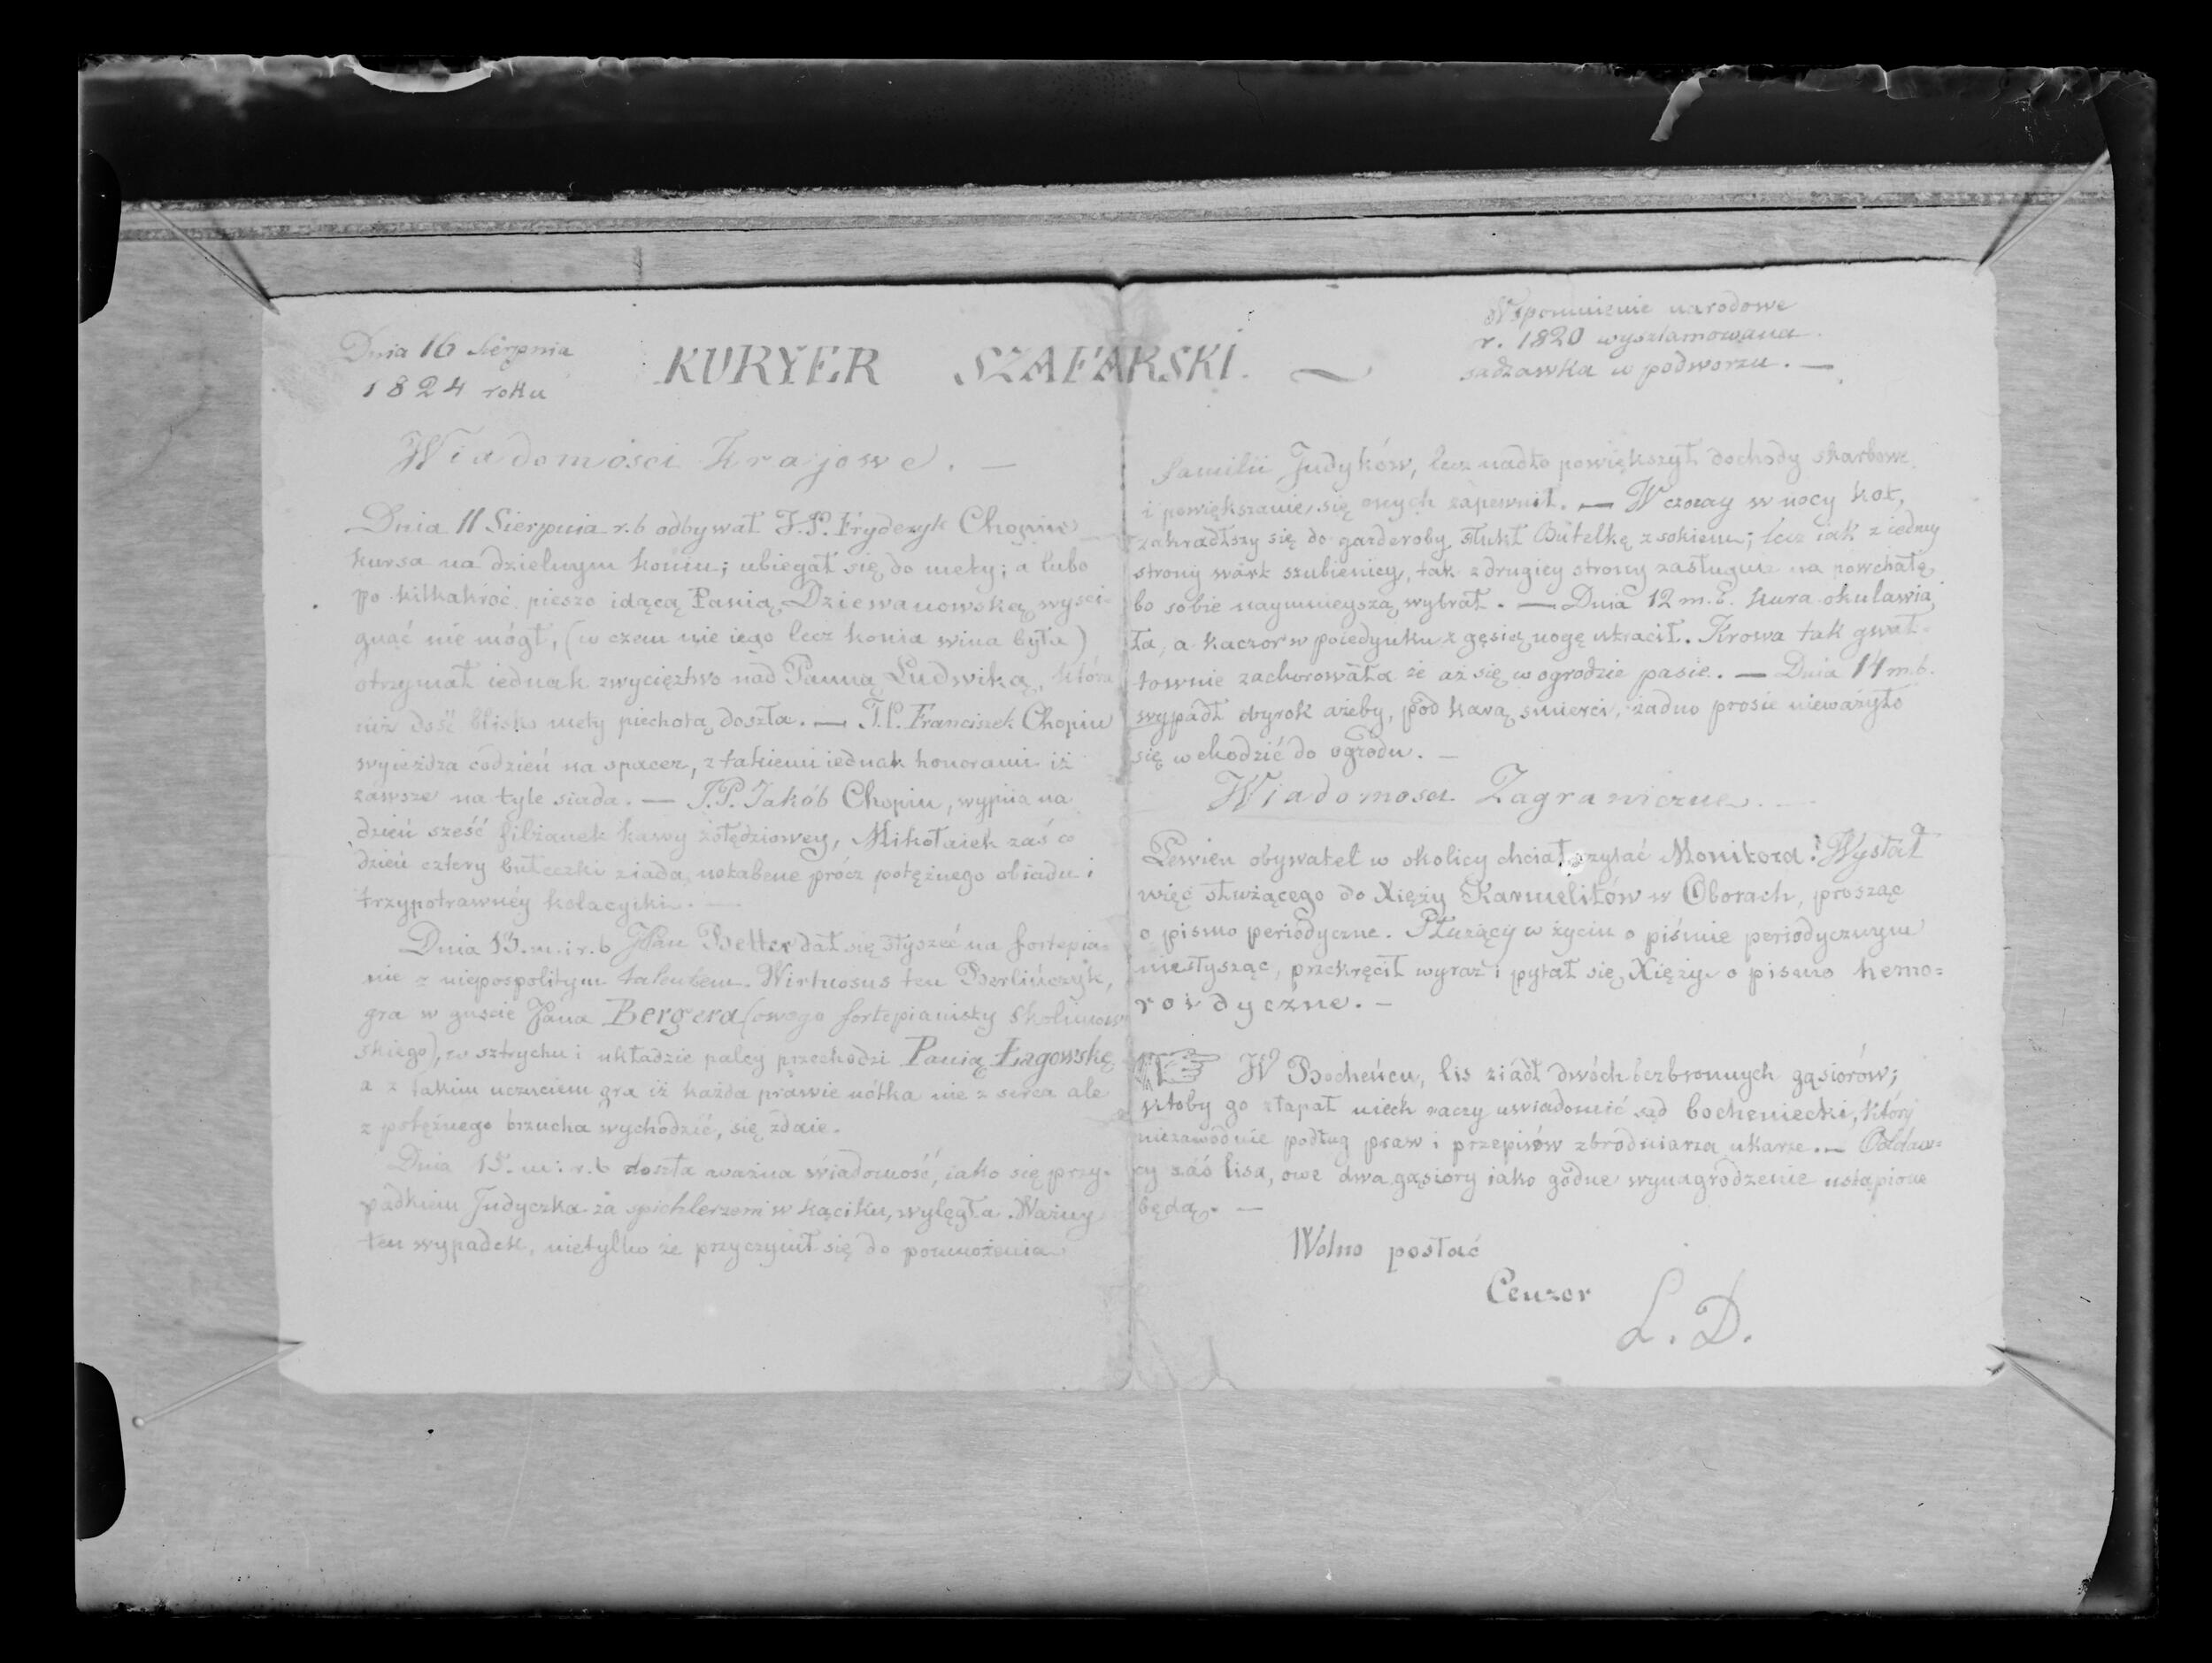 Dnia 16 Sierpnia
1824 roku
KURYER SZAFARSKI.
Wspomnienie narodowe
r. 1820 wyszlamowana
sadzawka w podworzu. —
Wiadomości Krajowe. —
Dnia 11 Sierpnia r.b odbywał J.P. Fryderyk Chopin
kursa na dzielnym koniu; ubiegał się do mety; a lubo
po kilkakróć pieszo idącą Panią Dziewanowską wysci-
gnąć nie mógł, (w czem nie iego lecz konia wina była)
otrzymał iednak zwycięztwo nad Panną Ludwiką, która
iuż dość blisko mety piechotą doszła. — J.P. Franciszek Chopin
wyieżdza codzień na spacer, z takiemi iednak honorami iż
zawsze na tyle siada. — J.P. Jakób Chopin, wypiia na
dzień sześć filiżanek kawy żołędziowey, Mikołaiek zaś co
dzień cztery bułeczki ziada, notabene prócz potężnego obiadu i
trzypotrawnéy kolacyiki. —
Dnia 13. m. i r. b JPan Better dał się słyszeć na fortepia-
nie z niepospolitym talentem. Wirtuosus ten Berlińczyk,
gra w guście JPana Bergera (owego fortepianisty Skolimow
skiego), w sztrychu i układzie palcy przechodzi Panią Łagowskę
a z takim uczuciem gra iż każda prawie nótka nie z serca ale
z potężnego brzucha wychodzić, się zdaie.
Dnia 15. m: r. b doszła ważna wiadomość, iako się przy-
padkiem Judyczka za spichlerzem w kąciku, wylęgła. Ważny
ten wypadek, nietylko że przyczynił się do pomnożenia
familii Judyków, lecz nadto powiększył dochody skarbowe
i powiększanie się onych zapewnił. — Wczoray w nocy kot,
zakradłszy się do garderoby, stłukł Butelkę z sokiem; lecz iak z iedney
strony wárt szubienicy, tak z drugiey strony zasługuie na pochwałę
bo sobie naymnieyszą wybrał. — Dnia 12 m. b. kura okulawia
ła, a kaczor w poiedynku z gęsią nogę utracił. Krowa tak gwał-
townie zachorowała że aż się w ogrodzie pasie. — Dnia 14 m. b.
wypadł wyrok ażeby, pod karą śmierci, żadno prosie nieważyło
się wchodzić do ogrodu. —
Wiadomosci Zagraniczne. —
Pewien obywatel w okolicy chciał czytać Monitora! Wysłał
więć służącego do Xięży Karmelitów w Oborach, prosząc
o pismo periodyczne. Służący w życiu o piśmie periodycznym
niesłysząc, przekręcił wyraz i pytał się Xięży o pismo hemo=
roidyczne. —
W Bocheńcu, lis ziadł dwóch bezbronnych gąsiorów;
ktoby go złapał niech raczy uwiadomić sąd bocheniecki, który
niezawodnie podług praw i przepisów zbrodniarza ukarze. — Oddaw=
cy záś lisa, owe dwa gąsiory iako gódne wynagrodzenie ustąpione
będą. —
Wolno posłać
Cenzor
L. D.